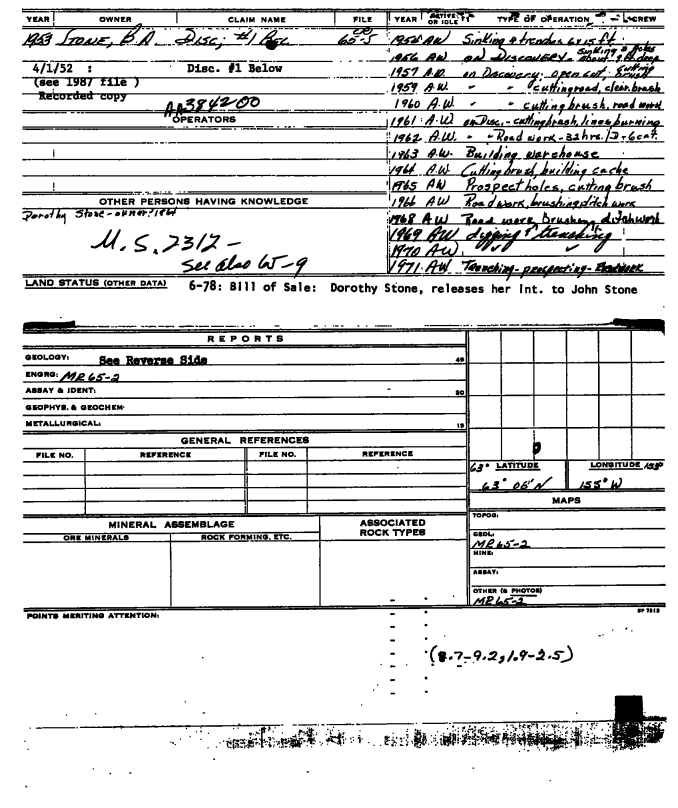 YEAR OWNER CLAIM NAME FILE
1953 STONE, B.A. Disc, #1 Bel. 65-5
4/1/52 : Disc. #1 Below
(see 1987 file )
Recorded copy
AA384200
OPERATORS
OTHER PERSONS HAVING KNOWLEDGE
Dorothy Stone - owner: 1964
M.S. 2312 -
See also 65-9
YEAR ACTIVE OR IDLE TYPE OF OPERATION CREW
1955 AW Sinking 4 trenches 6x15 ft.
1956 AW on Discovery - Sinking 2 holes about 9 ft. deep
1957 A.W. on Discovery: open cut, cutting brush
1959 A.W. " " cutting road, clear. brush
1960 A.W. " " cutting brush, road work
1961 A.W on Disc. - cutting brush, lines, burning
1962 A.W. " " Road work - 32 hrs. / D-6 cat.
1963 A.W. Building warehouse
1964 A.W. Cutting brush, building cache
1965 AW Prospect holes, cutting brush
1966 AW Road work, brushing, ditch work
1968 AW Road work, brushing, ditch work
1969 AW digging & trenching
1970 AW
1971 AW Trenching - prospecting -
LAND STATUS (OTHER DATA) 6-78: Bill of Sale: Dorothy Stone, releases her Int. to John Stone
REPORTS
GEOLOGY: See Reverse Side 45
ENGRG: MR 65-2
ASSAY & IDENT: 30
GEOPHYS. & GEOCHEM.
METALLURGICAL: 15
GENERAL REFERENCES
FILE NO. REFERENCE FILE NO. REFERENCE
63° LATITUDE LONGITUDE 155°
63° 06' N 155° W
MAPS
TOPOG:
GEOL: MR 65-2
MINE:
ASSAY:
OTHER (& PHOTOS)
MR 65-2
MINERAL ASSEMBLAGE ASSOCIATED ROCK TYPES
ORE MINERALS ROCK FORMING, ETC.
POINTS MERITING ATTENTION:
SP 7913
(8.7-9.2, 1.9-2.5)